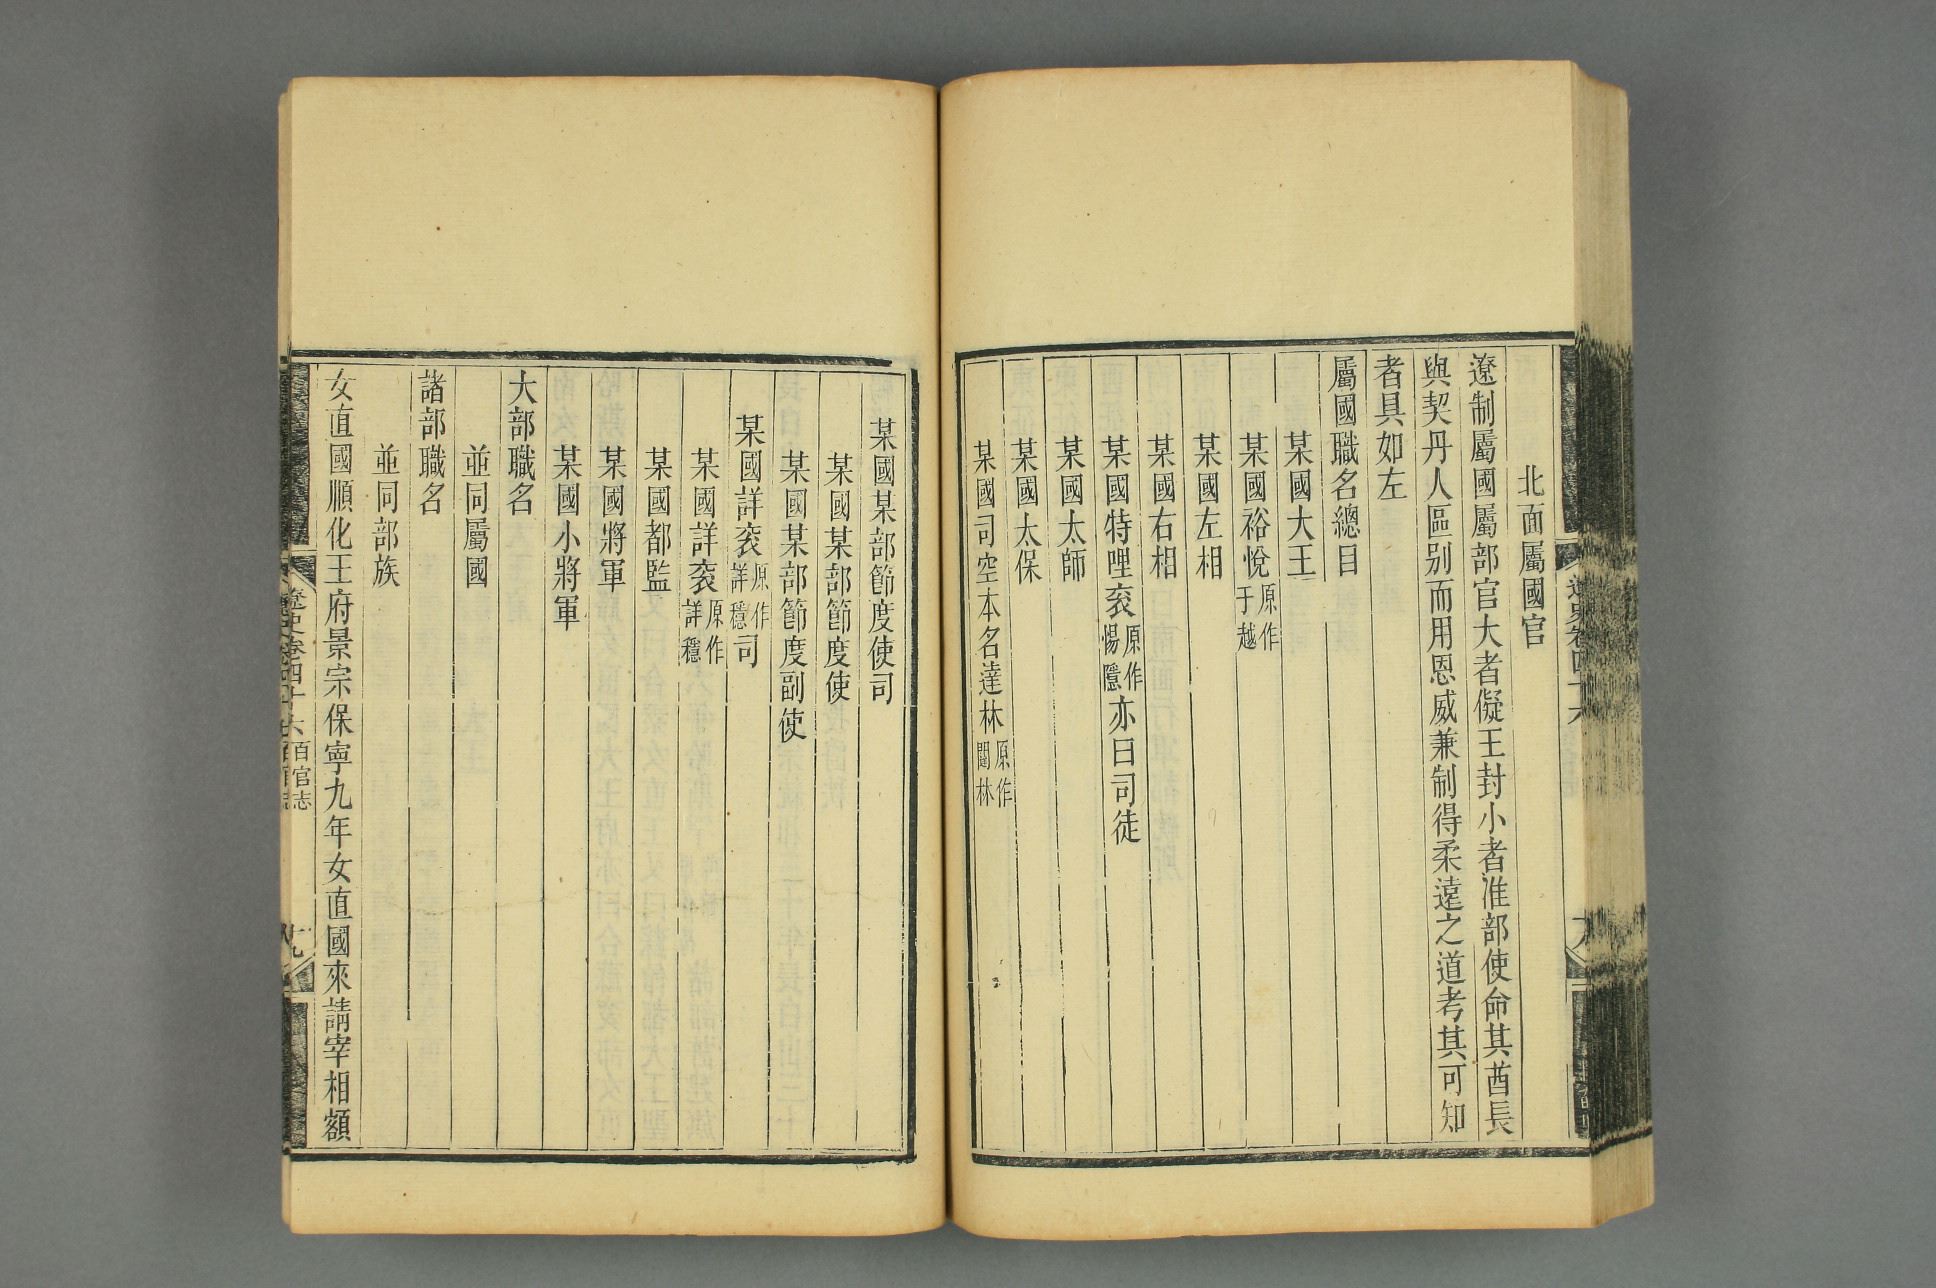 北面屬國官
遼制屬國屬部官大者儗王封小者准部使命其酋長
與契丹人區别而用恩威兼制得柔遠之道考其可知
者具如左
屬國職名總目
某國大王
某國裕悅原作于越
某國左相
某國右相
某國特哩衮原作惕隱亦曰司徒
某國太師
某國太保
某國司空本名達林原作闥林
某國某部節度使司
某國某部節度使
某國某部節度副使
某國詳衮原作詳穩司
某國詳衮原作詳穩
某國都監
某國將軍
某國小將軍
大部職名
並同屬國
諸部職名
並同部族
女直國順化王府景宗保寧九年女直國來請宰相額
遼史卷四十六 百官志 十九